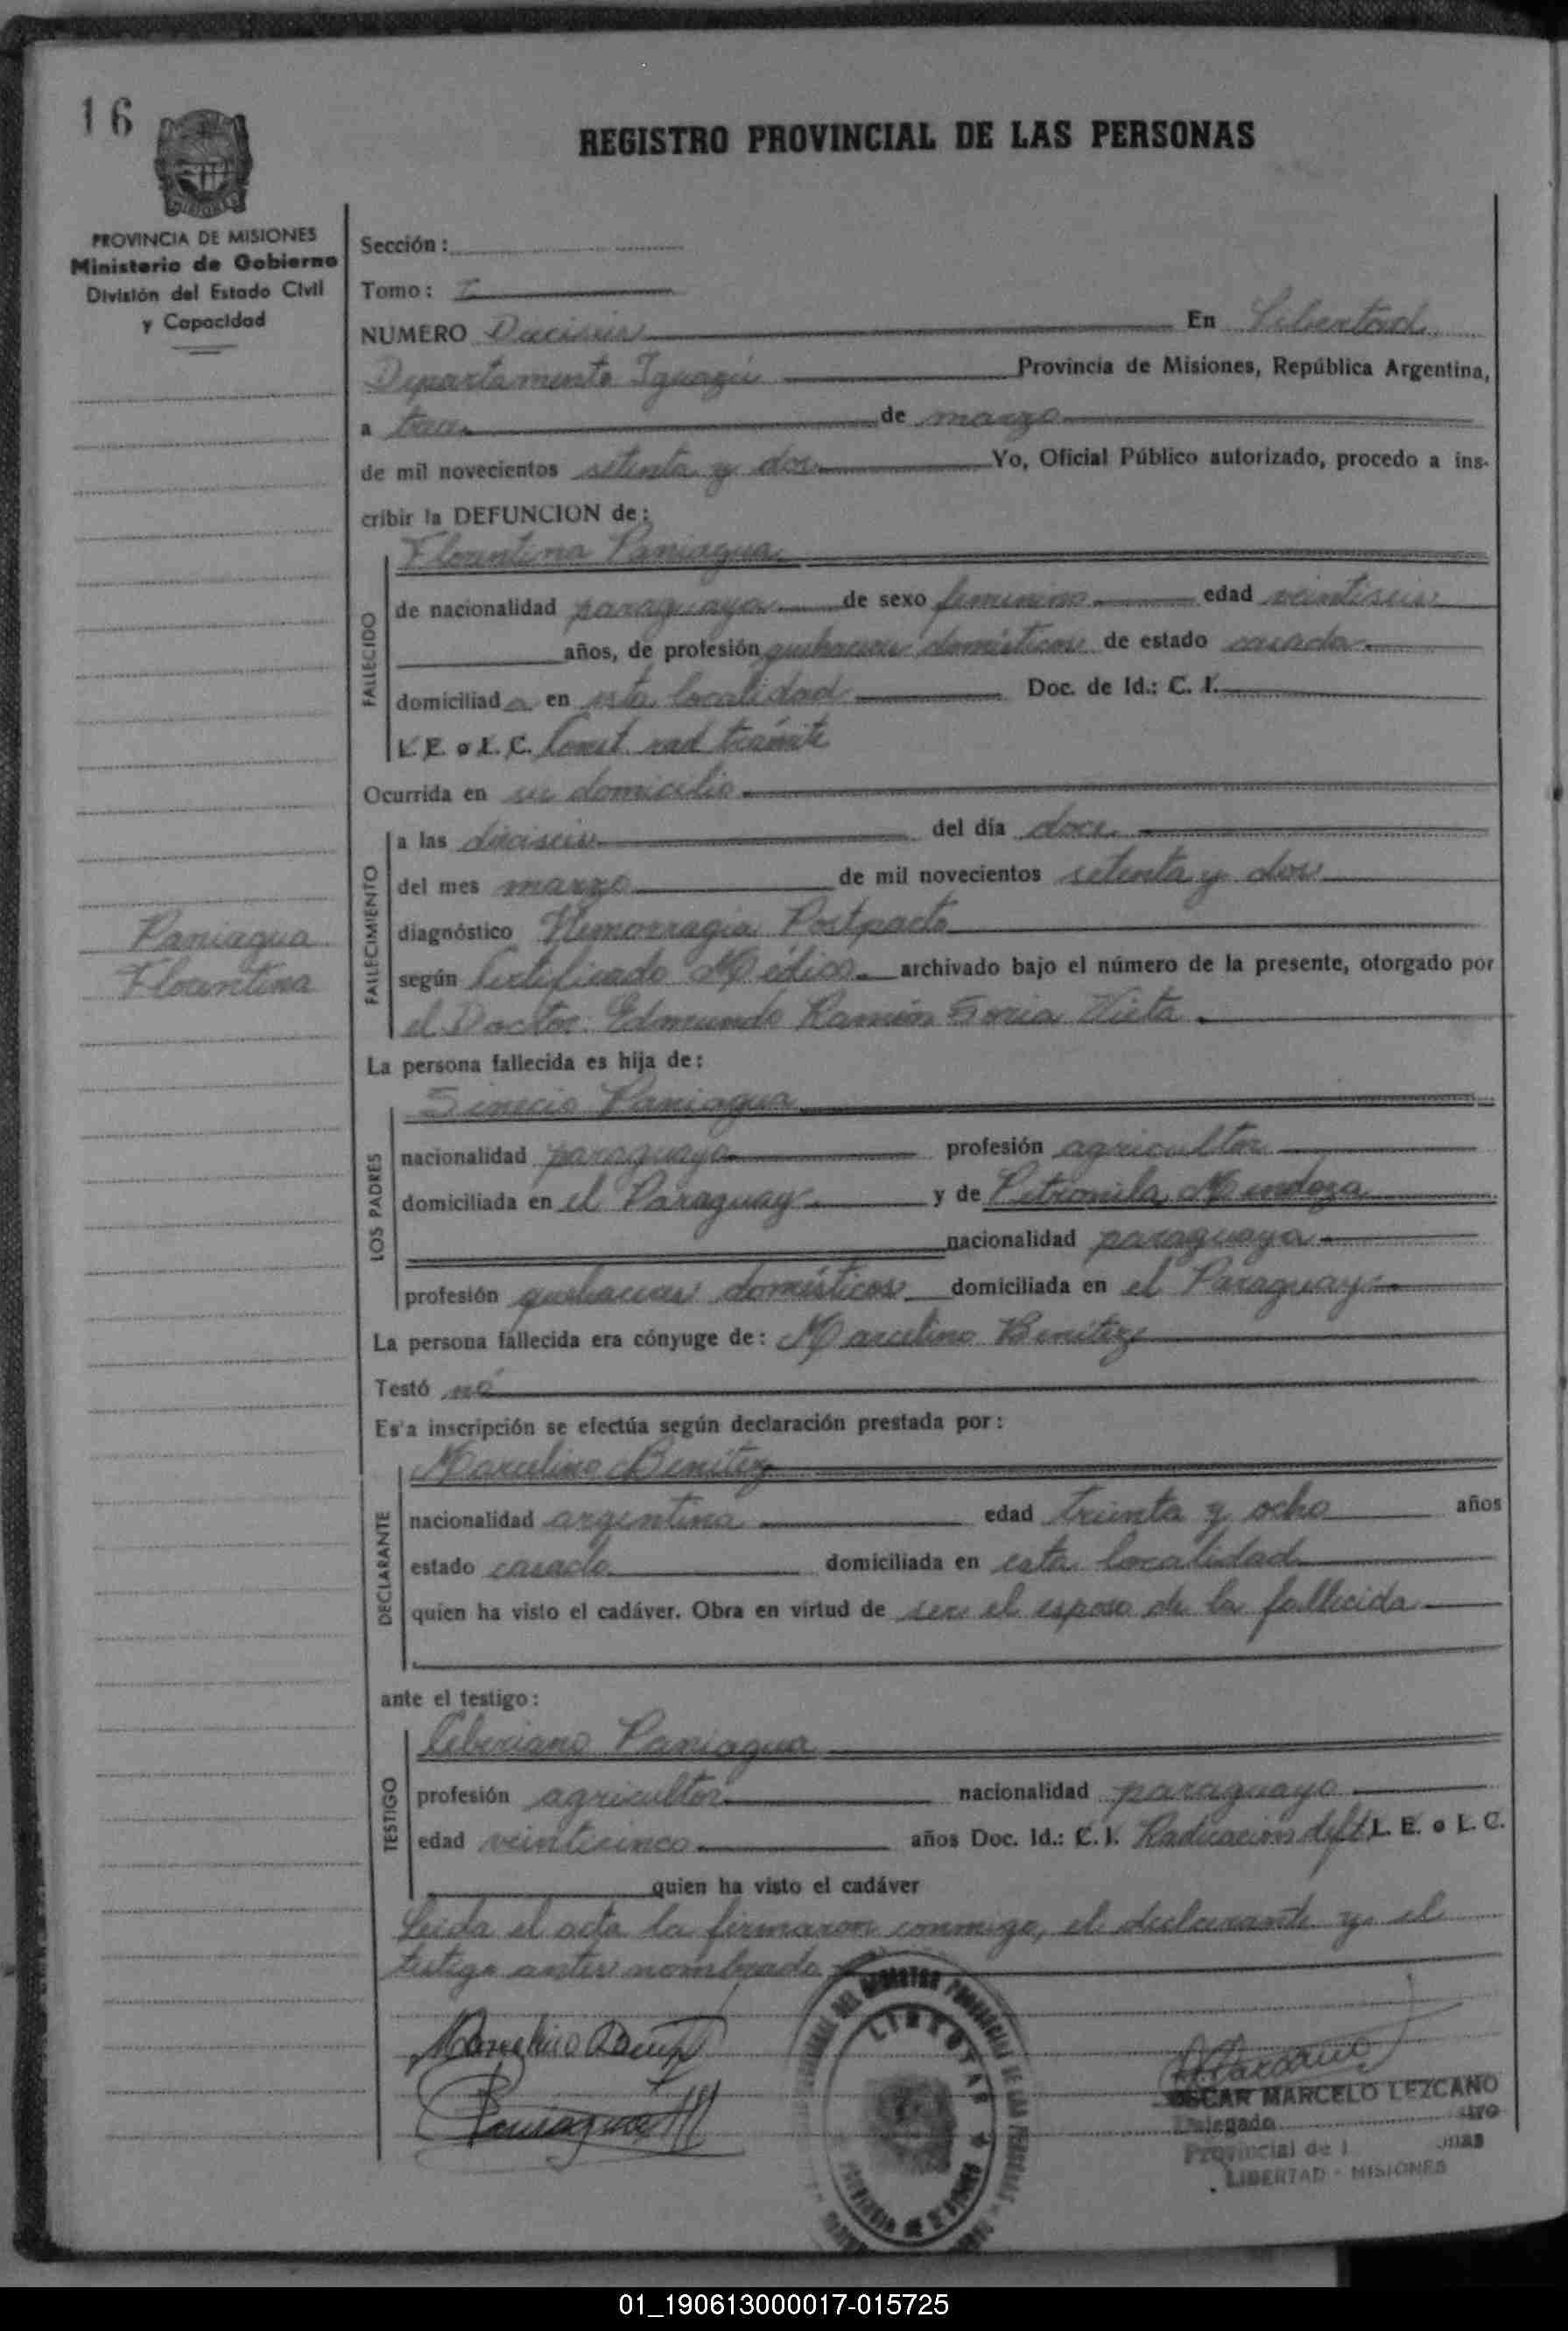 16
REGISTRO PROVINCIAL DE LAS PERSONAS
MISIONES
PROVINCIA DE MISIONES
Ministerio de Gobierno
División del Estado Civil
y Capacidad
Sección:
Tomo: I
NUMERO Dieciseis En Libertad
Departamento Iguazú Provincia de Misiones, República Argentina,
a trece de marzo
de mil novecientos setenta y dos Yo, Oficial Público autorizado, procedo a ins-
cribir la DEFUNCION de:
Florentina Paniagua
FALLECIDO
de nacionalidad paraguaya de sexo femenino edad veintiseis
años, de profesión quehaceres domésticos de estado casada
domiciliad a en esta localidad Doc. de Id.: C. I.
L. E. o L. C. Const. rad. trámite
Ocurrida en su domicilio
FALLECIMIENTO
a las dieciseis del día doce
del mes marzo de mil novecientos setenta y dos
diagnóstico Hemorragia Postparto
según Certificado Médico archivado bajo el número de la presente, otorgado por
el Doctor: Edmundo Ramón Soria Vieta
Paniagua
Florentina
La persona fallecida es hija de:
Paniagua
LOS PADRES
nacionalidad paraguaya profesión agricultor
domiciliada en el Paraguay y de Petronila Mendoza
nacionalidad paraguaya
profesión quehaceres domésticos domiciliada en el Paraguay
La persona fallecida era cónyuge de: Marcelino Benitez
Testó nó
Es'a inscripción se efectúa según declaración prestada por:
Marcelino Benitez
DECLARANTE
nacionalidad argentina edad treinta y ocho años
estado casado domiciliada en esta localidad
quien ha visto el cadáver. Obra en virtud de ser el esposo de la fallecida
ante el testigo:
Ceberiano Paniagua
TESTIGO
profesión agricultor nacionalidad paraguaya
edad veinticinco años Doc. Id.: C. I. Radicación def. L. E. o L. C.
quien ha visto el cadáver
Leida el acta la firmaron conmigo, el declarante y el
testigo antes nombrado
Marcelino Benitez
Paniagua
REGISTRO PROVINCIAL DE LAS PERSONAS
LIBERTAD
PROVINCIA DE MISIONES
OSCAR MARCELO LEZCANO
Delegado
Provincial de
LIBERTAD - MISIONES
01_190613000017-015725